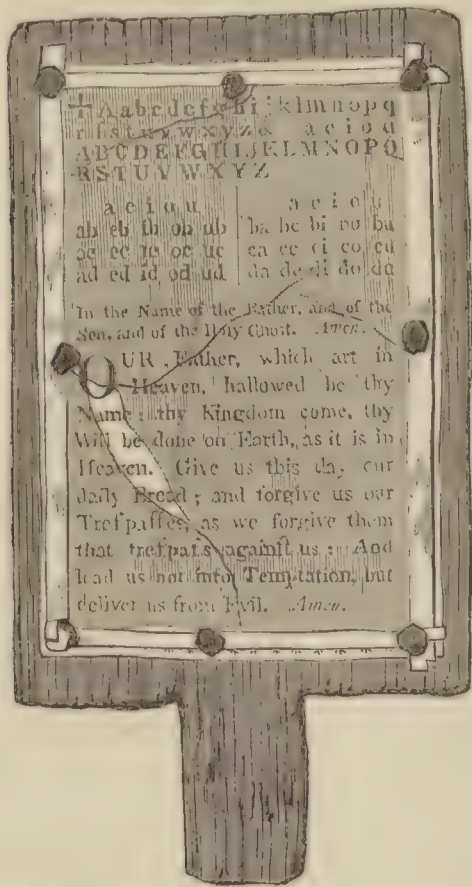 +Aabcdefghijklmnopq
rſstuvwxyz& aeiou
ABCDEFGHIJKLMNOPQ
RSTUVWXYZ
a e i o u a e i o u
ab eb ib ob ub ba be bi bo bu
ac ec ic oc uc ca ce ci co cu
ad ed id od ud da de di do du
In the Name of the Father, and of the
Son, and of the Holy Ghost. Amen.
OUR Father, which art in
Heaven, hallowed be thy
Name; thy Kingdom come, thy
Will be done on Earth, as it is in
Heaven. Give us this day our
daily Bread; and forgive us our
Treſpaſſes, as we forgive them
that treſpaſs againſt us: And
lead us not into Temptation, but
deliver us from Evil. Amen.